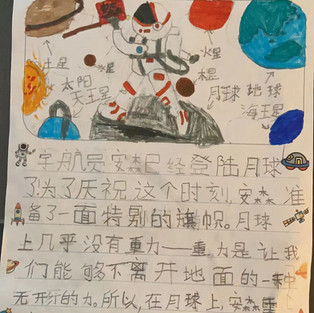 土星
火星
木星
太阳
天王星
月球
地球
海王星
宇航员安森已经登陆月球
了为了庆祝这个时刻,安森准
备了一面特别的旗帜。月球
上几乎没有重力——重力是让我
们能够不离开地面的一种
无形的力。所以,在月球上,安森重